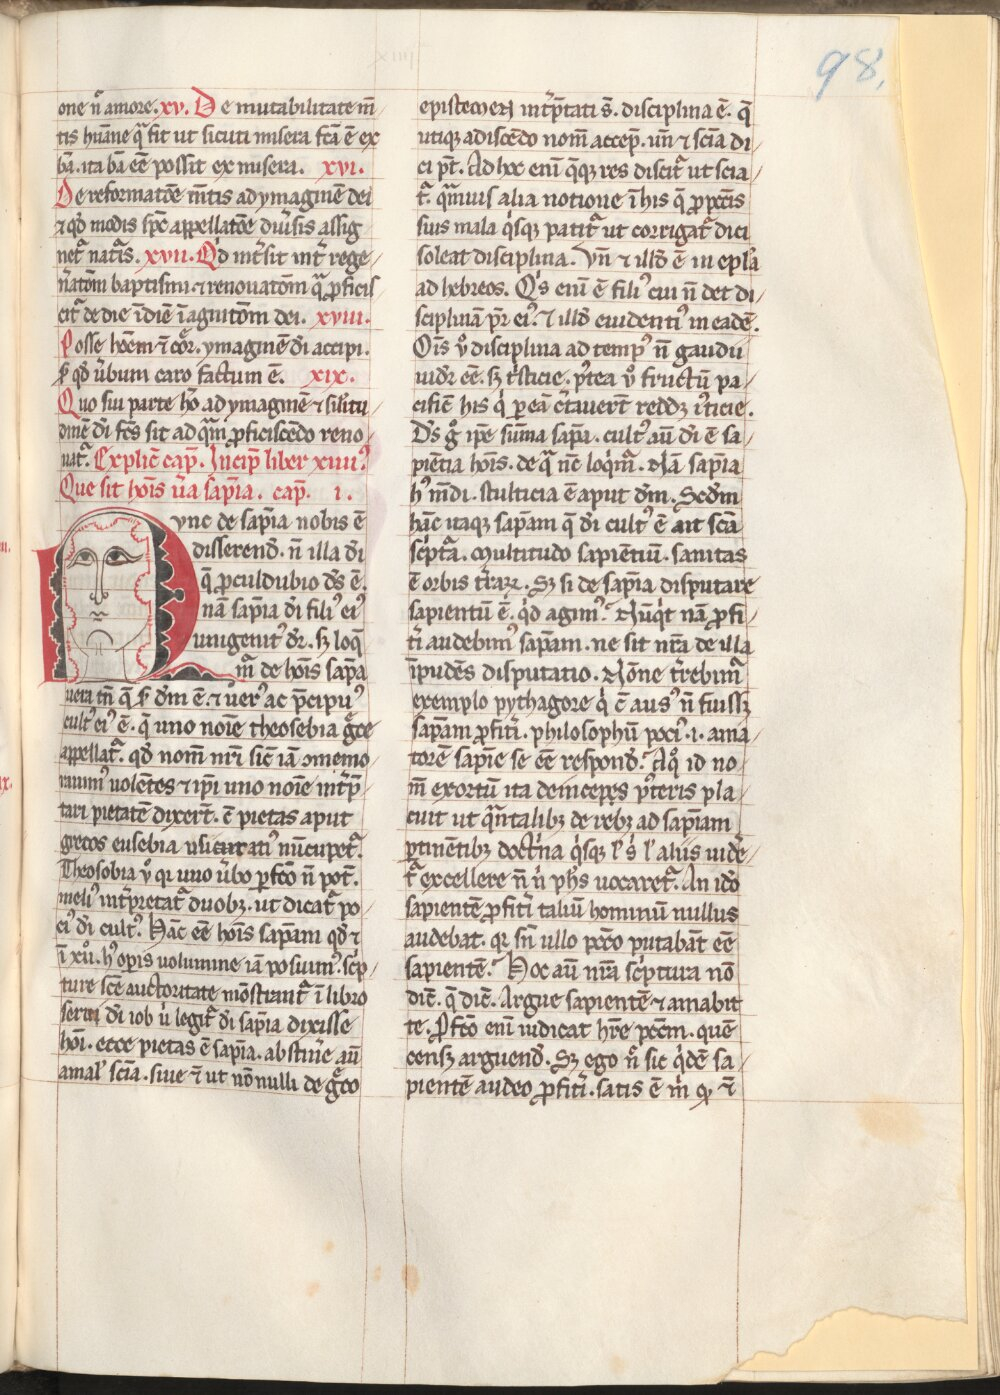 98.
one n̄ amore. xv. De mutabilitate m̄
tis hūane q̄ fit ut sicuti misera fcā ē ex
bā. ita bā eē possit ex misera. xvi.
De reformatōe m̄tis ad ymaginē dei
⁊ qđ modis spc̄ appellatōe diuīsis assig
net᷑ nat᷑is. xvii. Qđ int᷑sit int᷑ rege
n̄atōm baptismi ⁊ renouatōm qua ꝓficis
cit᷑ de die ī diē ī agnitōm dei. xviii.
Posse hoēm ⁊ cōr. ymaginē dī accipi.
ꝑ qđ ūbum caro factum ē. xix.
Quo sui parte hō ad ymaginē ⁊ silitu
dinē dī fc̄s sit ad quam ꝓficiscēdo reno
uat᷑. Explic̄ cap̄. Incip̄ liber xiiii.
Que sit hoīs ūa sapīa. cap̄. i.
Nunc de sapīa nobis ē
disserend̄. n̄ illa dī
q̄ ꝓculdubio ds̄ ē.
nā sapīa dī fili᷒ ei᷒
unigenit᷒ dr̄. sꝫ loq̄
m᷑ de hoīs sapīa
uera tn̄ q̄ ꝑ dm̄ ē. ⁊ uer᷒ ac p̄cipu᷒
cult᷒ ei᷒ ē. q̄ uno noīe theosebia gͣce
appellat᷑. qđ nom̄ nr̄i sic̄ iā ꝯmemo
rauim᷒ uolentes ⁊ ipī uno noīe int᷑p̄
tari pietatē dixer̄t. ē pietas aput
grecos eusebia usitati᷒ nūcupet᷑.
Theosobia ū qr uno ūbo ꝑfcō n̄ pot̄.
meli᷒ int᷑pretat᷑ duobꝫ. ut dicat᷑ po
ci᷒ dī cult᷒. Hāc eē hoīs sapīam qđ ⁊
ī xii. h᷒ opīs uolumine iā posuim᷒. sc̄p
ture sc̄e auctoritate mōstrant᷑ ī libro
serui dī iob ū legit᷑ dī sapīa dixisse
hoī. ecce pietas ē sapīa. abstin̄e aū
a mal᷒ scīa. siue ⁊ ut nō nulli de gͣco
epistemen int᷑p̄tati s̄. disciplina ē. q̄
utiqꝫ adiscēdo nom̄ accep̄. un̄ ⁊ scīa di
ci p̄t. Ad hoc enī q̄qꝫ res discit᷑ ut scia
t᷑. q̄muis alia notione ī his q̄ ꝓ pcc̄is
suis mala qͥsqꝫ patit᷑ ut corrigat᷑ dici
soleat disciplina. Vn̄ ⁊ illđ ē in epl̄a
ad hebreos. Qͥs enī ē fili᷒ cui n̄ det di
sciplinā pr̄ ei᷒. ⁊ illđ euidenti᷒ in eadē.
Oīs ū disciplina ad temp᷒ n̄ gaudii
uidr̄ eē. sꝫ tͥsticie. p᷒tea ū fructū pa
cificē his qͥ ꝑ eā c̄tauer̄t reddꝫ iusticie.
Ds̄ gͦ ip̄e sūma sapīa. cult᷒ aū dī ē sa
piētia hoīs. de qͣ nc̄ loqͥm᷑. Nā sapīa
h᷒ m̄di. stulticia ē aput dm̄. Scd̄m
hāc itaqꝫ sapīam q̄ dī cult᷒ ē ait scā
scͥpta. Multitudo sapiētiū. sanitas
ē orbis tr̄aꝝ. Sꝫ si de sapīa disputare
sapientiū ē. qͥd agim᷒. Nūqͥt nā ꝓfi
tī audebim᷒ sapīam. ne sit nr̄a de illa
īpudēs disputatio. Nōne tr̄ebim᷑
exemplo pythagore qͥ c̄ aus᷒ n̄ fuissꝫ
sapīam ꝓfitī. philosophū poci᷒ .i. ama
torē sapīe se eē respond̄. Aqͦ id no
m̄ exortū ita deinceps p᷒teris pla
cuit ut qͣntalibꝫ de rebꝫ ad sapīam
ꝑtinētibꝫ doctͥna qͥsqꝫ l᷒ sͥ l᷒ aliis uider̄
t᷑ excellere n̄ n̄ phs̄ uocaret᷑. An idō
sapientē ꝓfitī taliū hominū nullus
audebat. qr sn̄ ullo pcc̄o putabāt eē
sapientē. Hoc aū nr̄a scͥptura nō
dīc. q̄ dīc. Argue sapientē ⁊ amabit
te. Ꝓfcō enī iudicat hr̄e pcc̄m. quē
censꝫ arguend̄. Sꝫ ego n̄ sic qͥdē sa
pientē audeo ꝓfitī. satis ē m̄ qꝫ ⁊